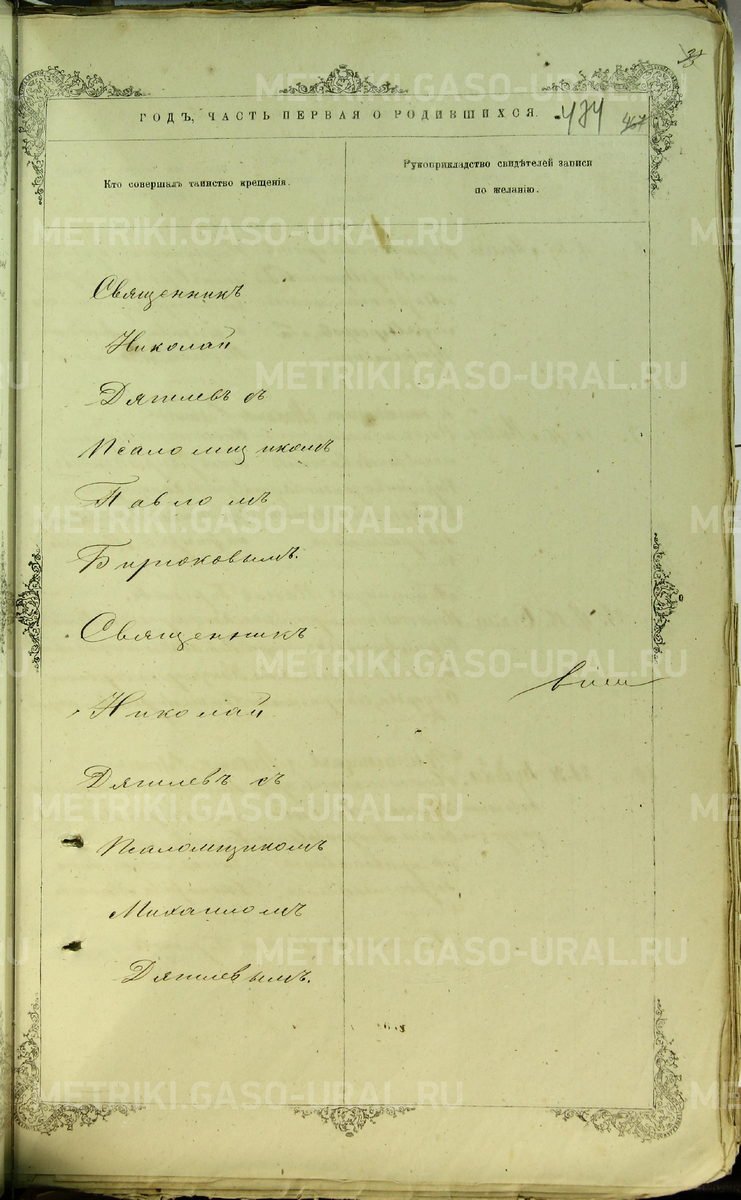 ГОДЪ, ЧАСТЬ ПЕРВАЯ О РОДИВШИХСЯ.
474
467
Кто совершалъ таинство крещенія.
Рукоприкладство свидѣтелей записи
по желанію.
Священникъ
Николай
Дягилевъ съ
Псаломщикомъ
Павломъ
Бирюковымъ.
Священникъ
Николай
Дягилевъ съ
Псаломщикомъ
Михаиломъ
Дягилевымъ.
METRIKI.GASO-URAL.RU